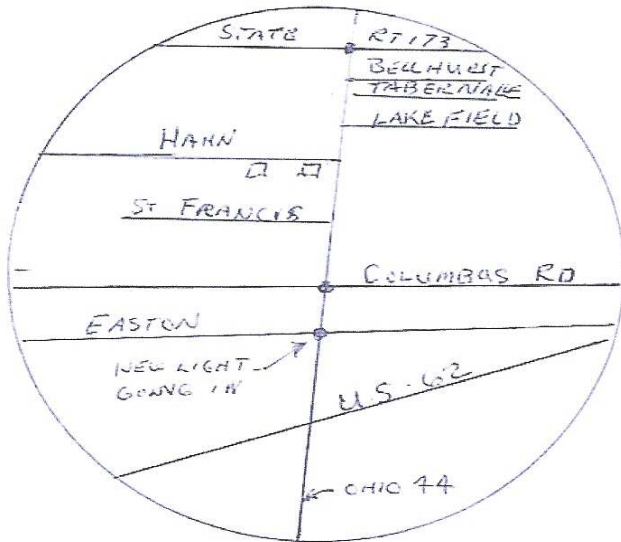 STATE RT 173
BELLHURST
TABERNACLE
LAKE FIELD
HAHN
ST FRANCIS
COLUMBUS RD
EASTON
NEW LIGHT
GOING IN
U.S. 62
OHIO 44